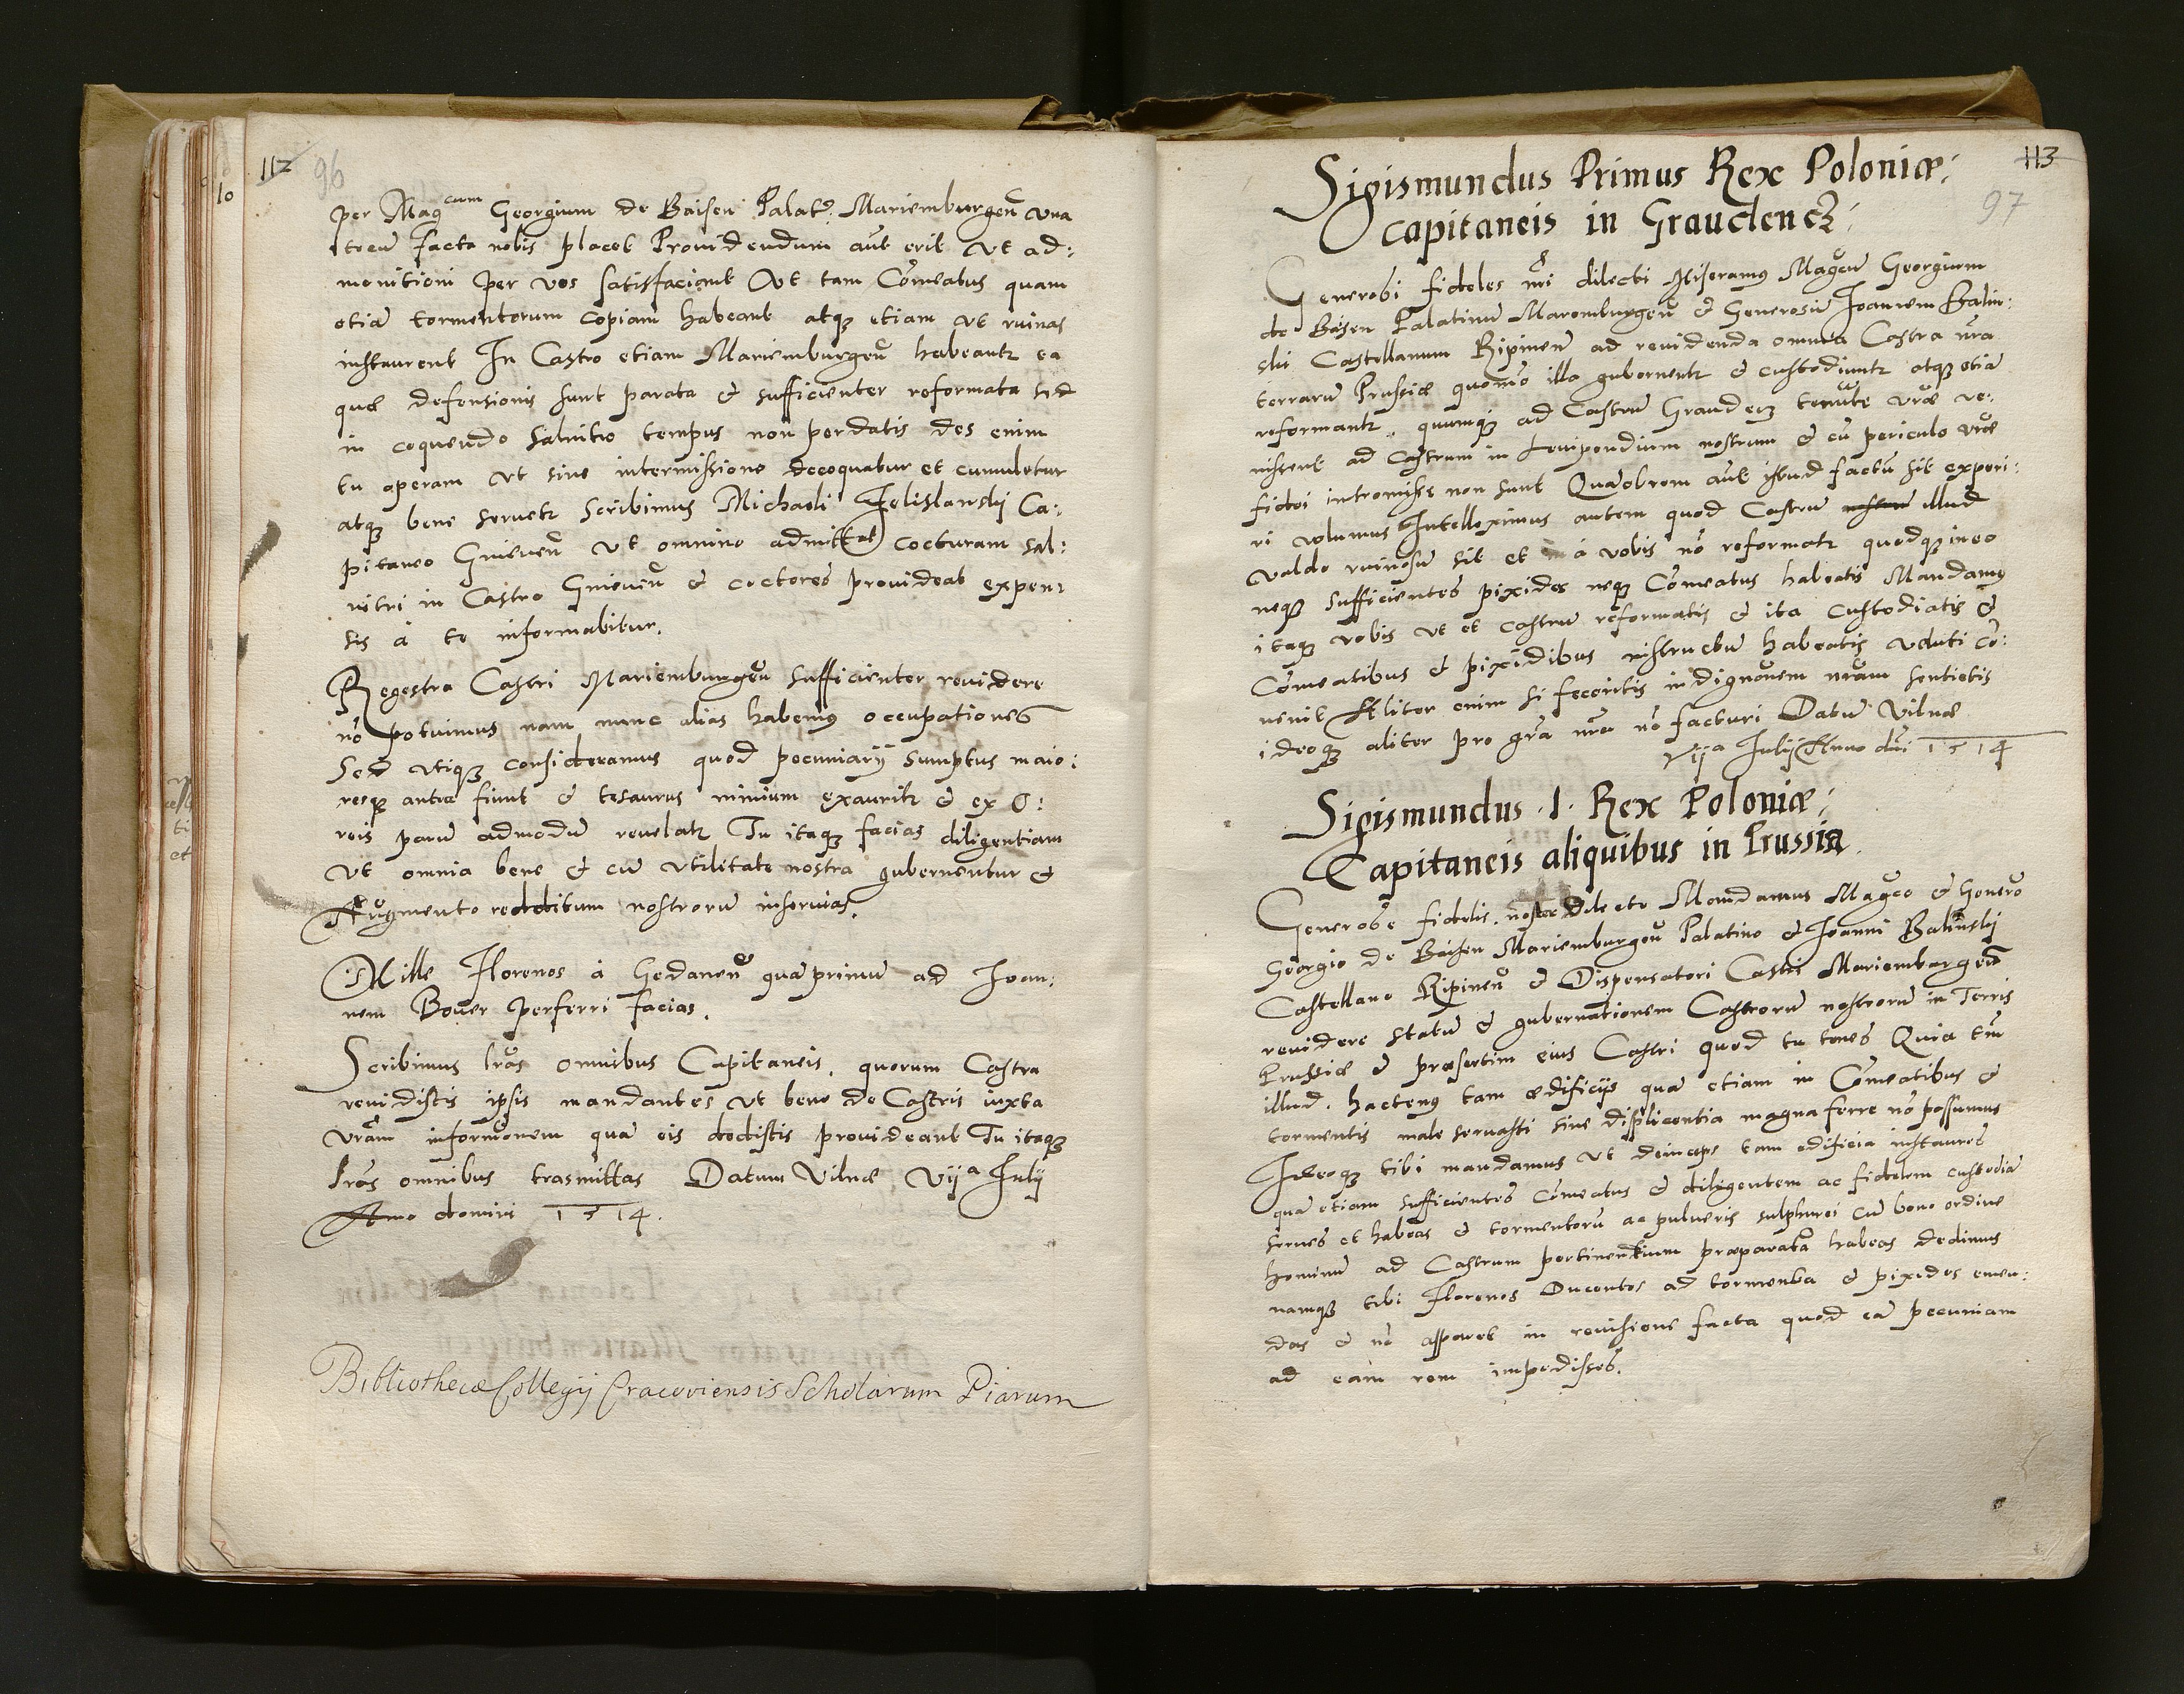 112 96
per Mag^cum Georgium de Baisen Palat: Mariemburgeñ vna
tecũ facta nobis placet Prouidendum aũt erit Vt ad:
monitioni per vos satisfaciant Vt tam Cõmeatus quam
etiã tormentorum copiam habeant atqȝ etiam vt ruinas
instaurent In Castro etiam Mariemburgeñ habeantr ea
quæ defensionis sunt parata & sufficienter reformata sed
in coquendo salnitro tempus non perdatis des enim
tu operam vt sine intermissione decoquatur et cumuletur
atqȝ bene seruetr Scribimus Michaeli Zelislawskij Ca:
pitaneo Gnieueñ Vt omnino admittat cocturam sal:
nitri in Castro Gnieueñ & coctores prouideat expen:
sis à te informabitur.
Regestra Castri Mariemburgeñ sufficienter reuidere
nõ potuimus nam nunc alias habemus occupationes
Sed vtiqȝ consideramus quod pecuniarij sumptus maio:
resqȝ antea fiunt & tesaurus nimium exauritr & ex O:
reis parũ admodũ reuelatr Tu itaqȝ facias diligentiam
Vt omnia bene & cũ vtilitate nostra gubernentur &
Augmento reddituum nostrorũ inseruias.
Mille Florenos à Gedaneñ quàprimũ ad Ioan:
nem Boner perferri facias.
Scribimus lrãs omnibus Capitaneis, quorum Castra
reuidistis ipsis mandantes vt bene de Castris iuxta
vrãm informõnem quã eis dedistis prouideant Tu itaqȝ
lrãs omnibus trasmittas Datum Vilnæ Vija Iulij
Anno domini 1514.
Bibliothecæ Collegij Cracoviensis Scholarum Piarum
113
97
Sigismundus Primus Rex Poloniæ:
capitaneis in Graudencz:
Generosi fideles nr̃i dilecti Miseramus Magcũ Georgium
de Baisen Palatinũ Maremburgeñ & Generosũ Joannem Balin:
ski Castellanum Ripineñ ad reuidenda omnia Castra nr̃a
terrarũ Prussiæ quomõ illa gubernentr & custodiuntr atqȝ etiã
reformantr, quumqȝ ad Castrũ Graudecz tenutæ vræ ve:
nissent ad Castrum in Leuipendium nostrum & cũ periculo vræ
fidei intromissi non sunt Quãobrem aũt istud factũ sit experi:
ri volumus Intelleximus autem quod Castrũ nostrũ illud
valde ruinosũ sit et à vobis nõ reformatr quodqȝ in eo
neqȝ sufficientes pixides neqȝ Cõmeatus habeatis Mandamus
itaqȝ vobis vt et castrũ reformatis & ita custodiatis &
Cõmeatibus & pixidibus instructũ habeatis veluti cõ:
uenit Aliter enim si feceritis indignõnem nrãm sentietis
ideoqȝ aliter pro grã nr̃a nõ facturi Datũ Vilnæ
Vija Iulij Anno dñi 1514
Sigismundus .I. Rex Poloniæ:
Capitaneis aliquibus in Prussia.
Generose fidelis. noster Dilecte Mandamus Magco & Genero
Georgio de Baisen Mariemburgeñ Palatino & Ioanni Balinskij
Castellano Ripineñ & Dispensatori Castri Mariemburgeñ
reuidere statũ & gubernationem Castrorũ nostrorũ in Terris
Prussiæ & præsertim eius Castri quod tu tenes Quia tñ
illud. hactenus tam ædificijs quã etiam in Cõmeatibus &
tormentis male seruasti sine displicentia magna ferre nõ possumus
Ideoqȝ tibi mandamus vt deinceps tam edificia instaures
quã etiam sufficientes Cõmeatus & diligentem ac fidelem custodiã
serues et habeas & tormentorũ ac pulueris sulphurei cũ bono ordine
hominũ ad Castrum pertinentium præparata habeas Dedimus
namqȝ tibi Florenos Ducentos ad tormenta & pixides emen:
das & nõ apparet in reuisione facta quod eã pecuniam
ad eam rem impedisses.